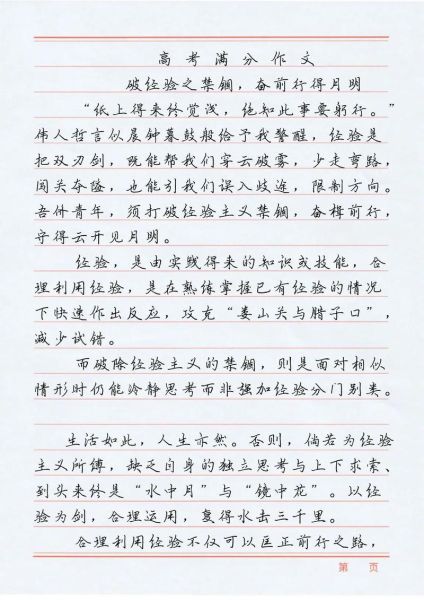 高考满分作文
破经验之禁锢，奋前行得月明
“纸上得来终觉浅，绝知此事要躬行。”
伟人哲言似晨钟暮鼓般给予我警醒，经验是
把双刃剑，既能帮我们穿云破雾，少走弯路，
闯关夺隘，也能引我们误入歧途，限制方向。
吾侪青年，须打破经验主义禁锢，奋楫前行，
守得云开见月明。
经验，是由实践得来的知识或技能，合
理利用经验，是在熟练掌握已有经验的情况
下快速作出反应，攻克“娄山关与腊子口”，
减少试错。
而破除经验主义的禁锢，则是面对相似
情形时仍能冷静思考而非强加经验分门别类。
生活如此，人生亦然。否则，倘若为经验
主义所缚，缺乏自身的独立思考与上下求索、
到头来终是“水中月”与“镜中花”。以经
验为剑，合理运用，复得水击三千里。
合理利用经验不仅可以匡正前行之路，
第 页